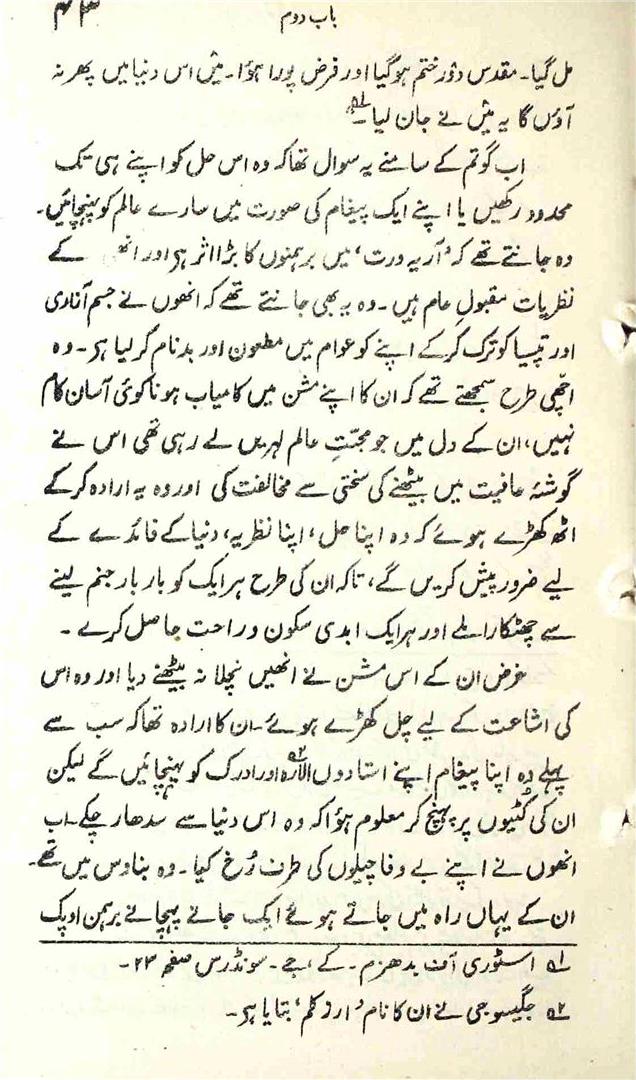 باب دوم
۴۳
مل گیا۔ مقدس دَور ختم ہوگیا اور فرض پورا ہوُا۔ میَں اس دنیا میں پھر نہ
آؤں گا یہ میَں نے جان لیا۔ ۱؎
اب گوتم کے سامنے یہ سوال تھا کہ وہ اس حل کو اپنے ہی تک
محدود رکھیں یا اپنے ایک پیغام کی صورت میں سارے عالم کو پہنچائیں۔
وہ جانتے تھے کہ ’آریہ ورت‘ میں برہمنوں کا بڑا اثر ہی اور انھی کے
نظریات مقبولِ عام ہیں۔ وہ یہ بھی جانتے تھے کہ انھوں نے جسم آزاری
اور تپسیا کو ترک کرکے اپنے کو عوام میں مطعون اور بدنام کرلیا ہی۔ وہ
اچھی طرح سمجھتے تھے کہ ان کا اپنے مشن میں کامیاب ہونا کوئی آسان کام
نہیں، ان کے دل میں جو محبّتِ عالم لہریں لے رہی تھی اس نے
گوشۂ عافیت میں بیٹھنے کی سختی سے مخالفت کی اور وہ یہ ارادہ کرکے
اٹھ کھڑے ہوئے کہ وہ اپنا حل، اپنا نظریہ، دنیا کے فائدے کے
لیے ضرور پیش کریں گے، تاکہ ان کی طرح ہر ایک کو بار بار جنم لینے
سے چھٹکارا ملے اور ہر ایک ابدی سکون و راحت حاصل کرے۔
غرض ان کے اس مشن نے انھیں نچلا نہ بیٹھنے دیا اور وہ اس
کی اشاعت کے لیے چل کھڑے ہوئے۔ ان کا ارادہ تھا کہ سب سے
پہلے وہ اپنا پیغام اپنے استادوں الارہ ۲؎ اور ادرک کو پہنچائیں گے لیکن
ان کی کٹیوں پر پہنچ کر معلوم ہوُا کہ وہ اس دنیا سے سدھار چکے۔ اب
انھوں نے اپنے بے وفا چیلوں کی طرف رُخ کیا۔ وہ بنارس میں تھے۔
ان کے یہاں راہ میں جاتے ہوئے ایک جانے پہچانے برہمن اوپک
۱؎ اسٹوری آف بدھزم۔ کے، جے۔ سونڈرس صفحہ ۲۳۔
۲؎ جگیسوجی نے ان کا نام ’ارڑ کلم‘ بتایا ہی۔